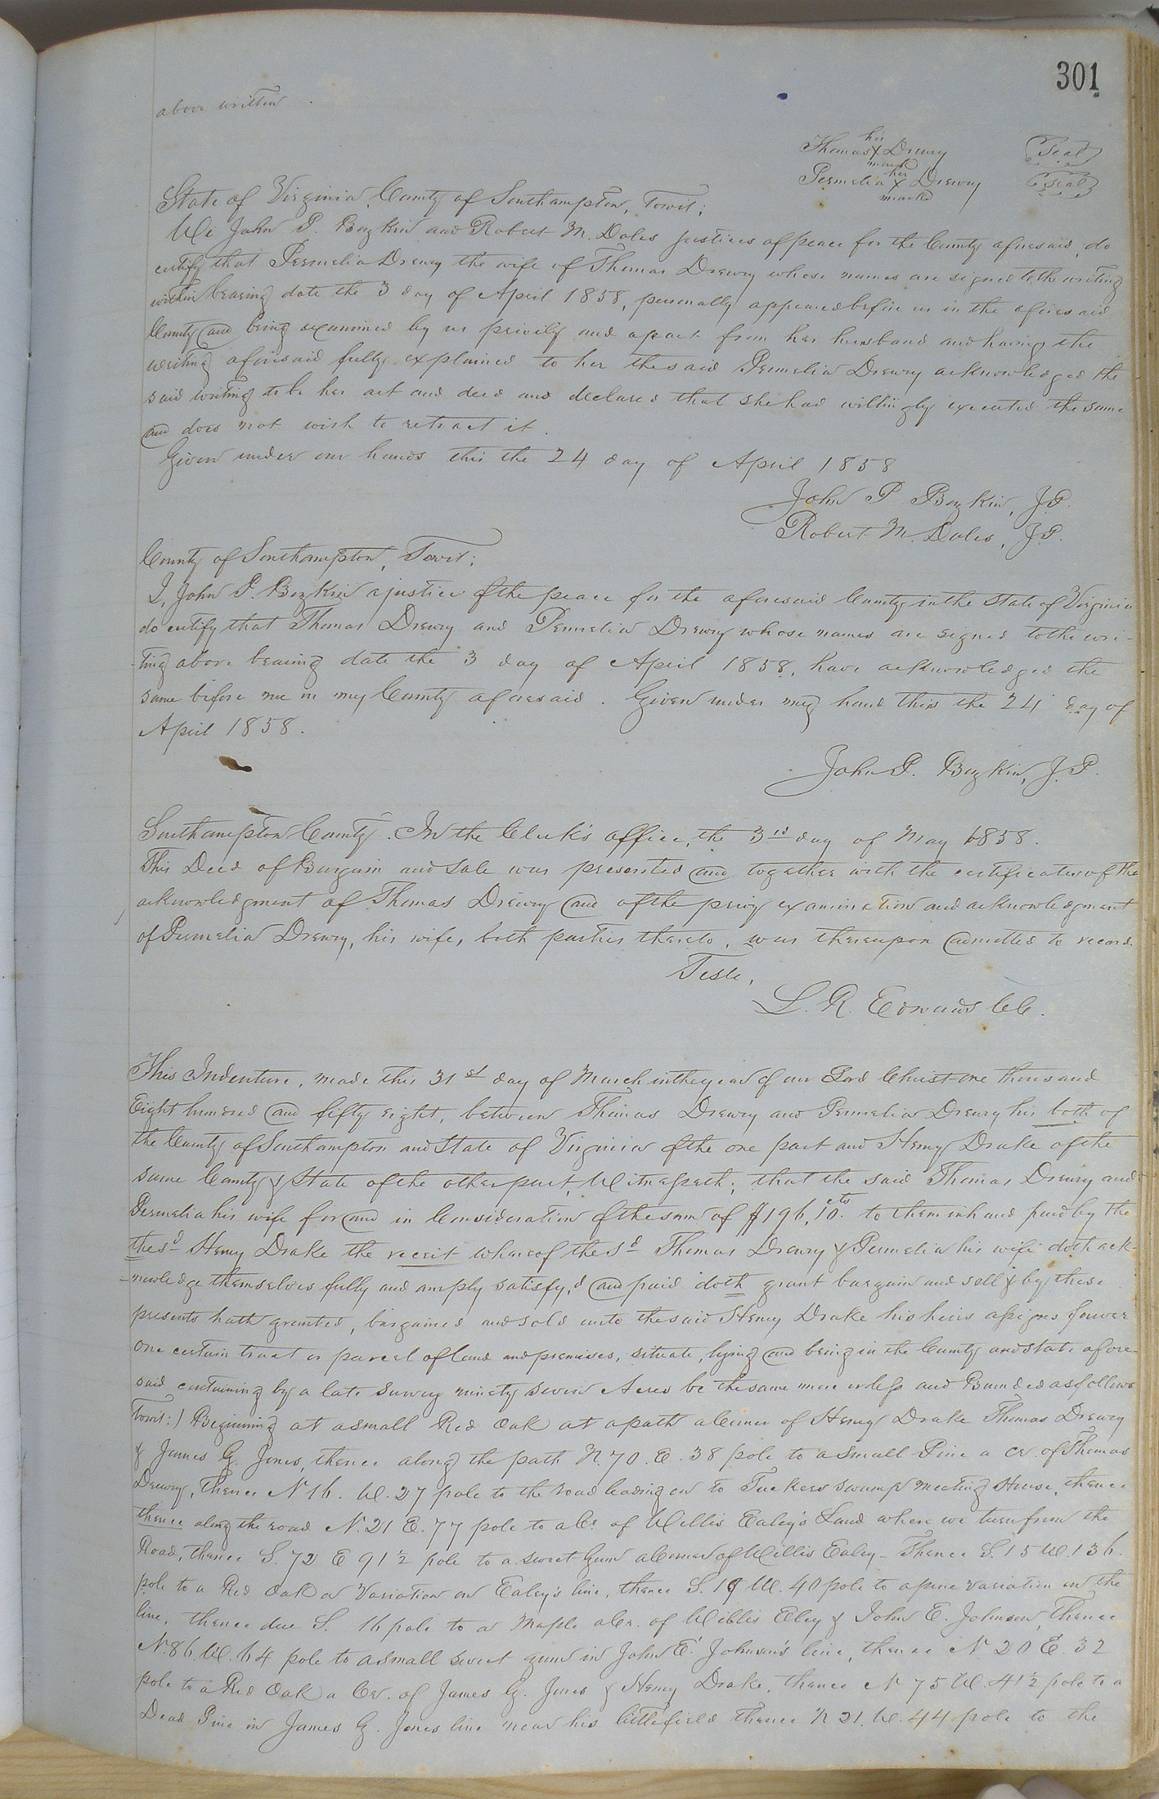 301
above written
his
Thomas X Drewry (Seal)
mark
her
Permelia X Drewry (Seal)
mark
State of Virginia, County of Southampton, Towit;
We John P. Boykin and Robert M. Dales justices of peace for the County aforesaid, do
certify that Permelia Drewry the wife of Thomas Drewry whose names are signed to the writing
within bearing date the 3 day of April 1858, personally appeared before us in the aforesaid
County and being examined by us privily and apart from her husband and having the
writing aforesaid fully explained to her the said Permelia Drewry acknowledged the
said writing to be her act and deed and declared that she had willingly executed the same
and does not wish to retract it.
Given under our hands this the 24 day of April 1858
John P Boykin, J.P.
Robert M. Dales, J.P.
County of Southampton, Towit;
I, John P. Boykin a justice of the peace for the aforesaid County in the State of Virginia
do certify that Thomas Drewry and Permelia Drewry whose names are signed to the wri-
ting above bearing date the 3 day of April 1858, have acknowledged the
same before me in my County aforesaid. Given under my hand this the 24 day of
April 1858.
John P. Boykin, J.P.
Southampton County. In the Clerk's office, the 3rd day of May 1858.
This Deed of Bargain and Sale was presented and together with the certificates of the
acknowledgment of Thomas Drewry and of the privy examination and acknowledgment
of Permelia Drewry, his wife, both parties thereto, was thereupon admitted to record.
Teste,
L. R. Edwards CC.
This Indenture, made this 31st day of March in the year of our Lord Christ one thousand
Eight hundred and fifty eight, between Thomas Drewry and Permelia Drewry his both of
the County of Southampton and State of Virginia of the one part and Henry Drake of the
same County & State of the other part, Witnesseth; that the said Thomas Drewry and
Permelia his wife for and in Consideration of the sum of $196,10cts to them in hand paid by the
the sd Henry Drake the receit whareof the sd Thomas Drewry & Permelia his wife doth ack-
nowledge themselves fully and amply satisfy,d and paid doth grant bargain and sell & by these
presents hath granted, bargained and sold unto the said Henry Drake his heirs assigns forever
One certain tract or parcel of land and premises, situate, lying and being in the County and State afore-
said containing by a late survey ninety seven Acres be the same more or less and Bounded as follows
towit:) Beginning at a small Red Oak at a path a Corner of Henry Drake Thomas Drewry
& James G. Jones, thence along the path N. 70. E. 38 pole to a small Pine a cr. of Thomas
Drewry, thence N 16. W. 27 pole to the road leading on to Tuckers Swamp meeting House, thence
thence along the road N. 21 E. 77 pole to a Cr. of Willis Ealey's Land where we turn from the
Road, thence S. 72 E 91½ pole to a sweet Gum a Corner of Willis Ealey - Thence S. 15 W. 136.
pole to a Red Oak a Variation on Ealey's line, thence S. 19 W. 40 pole to a pine variation on the
line, thence due S. 16 pole to a Maple a Cr. of Willis Eley & John E. Johnson, Thence
N. 86. W. 64 pole to a small sweet gum in John E. Johnson's line, thence N 20 E. 32
pole to a Red Oak a Cr. of James G. Jones & Henry Drake, thence N 75 W. 41½ pole to a
Dead Pine in James G. Jones line near his littlefield thence N 21. W. 44 pole to the